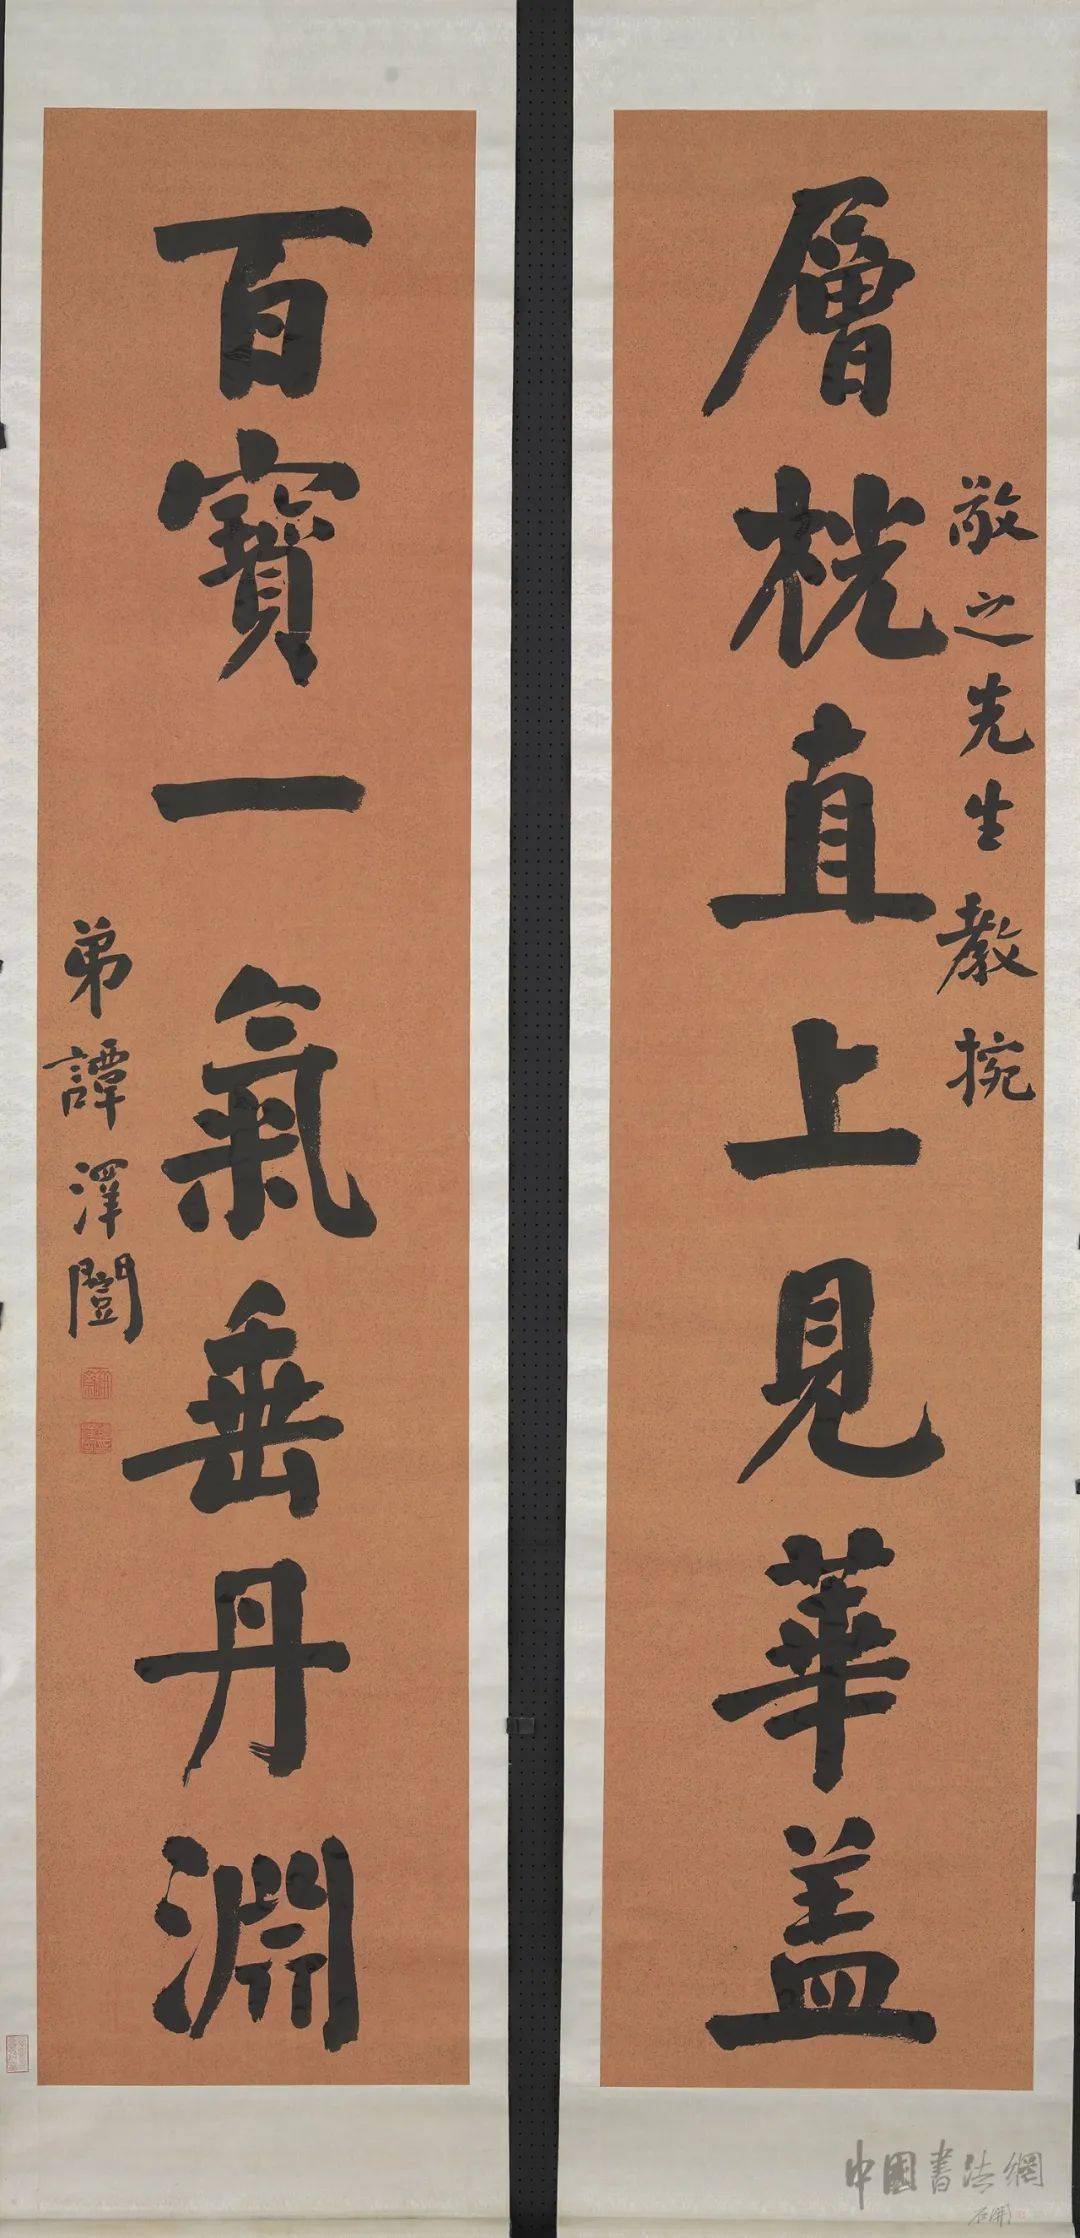 敬之先生教掜
層桄直上見華盖
百寶一氣垂丹淵
弟譚澤闓
中國書法網